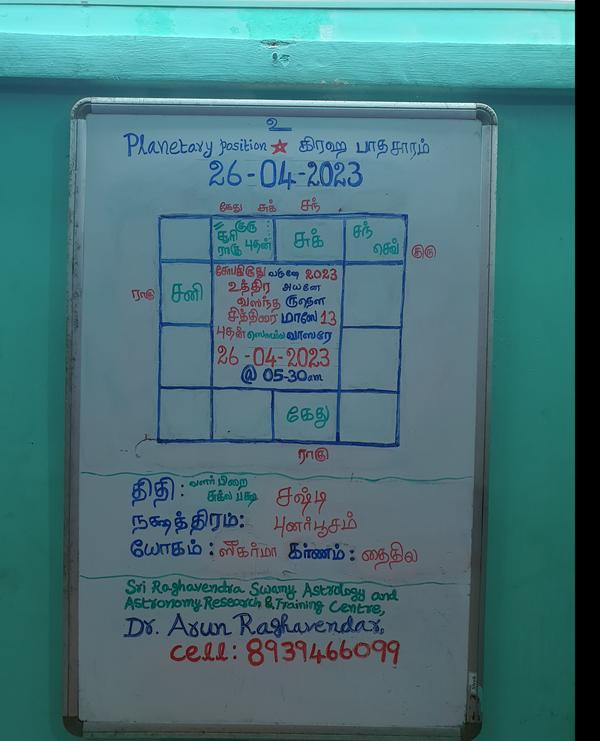 உ
Planetary position ★ கிரஹ பாதசாரம்
26-04-2023
கேது சுக் சந்
குரு
சூரி
ராகு புதன்
சுக்
சந்
செவ்
குரு
ராகு
சனி
சோபகிருது வருஷே 2023
உத்திர அயனே
வஸந்த ருதௌ
சித்திரை மாஸே 13
புதன் ஸௌம்ய வாஸரே
26-04-2023
@ 05-30am
கேது
ராகு
திதி : வளர்பிறை
சுக்ல பக்ஷ சஷ்டி
நக்ஷத்திரம்: புனர்பூசம்
யோகம் : ஸுகர்மா கரணம் : தைதில
Sri Raghavendra Swamy Astrology and
Astronomy Research & Training Centre,
Dr. Arun Raghavendar,
cell: 8939466099